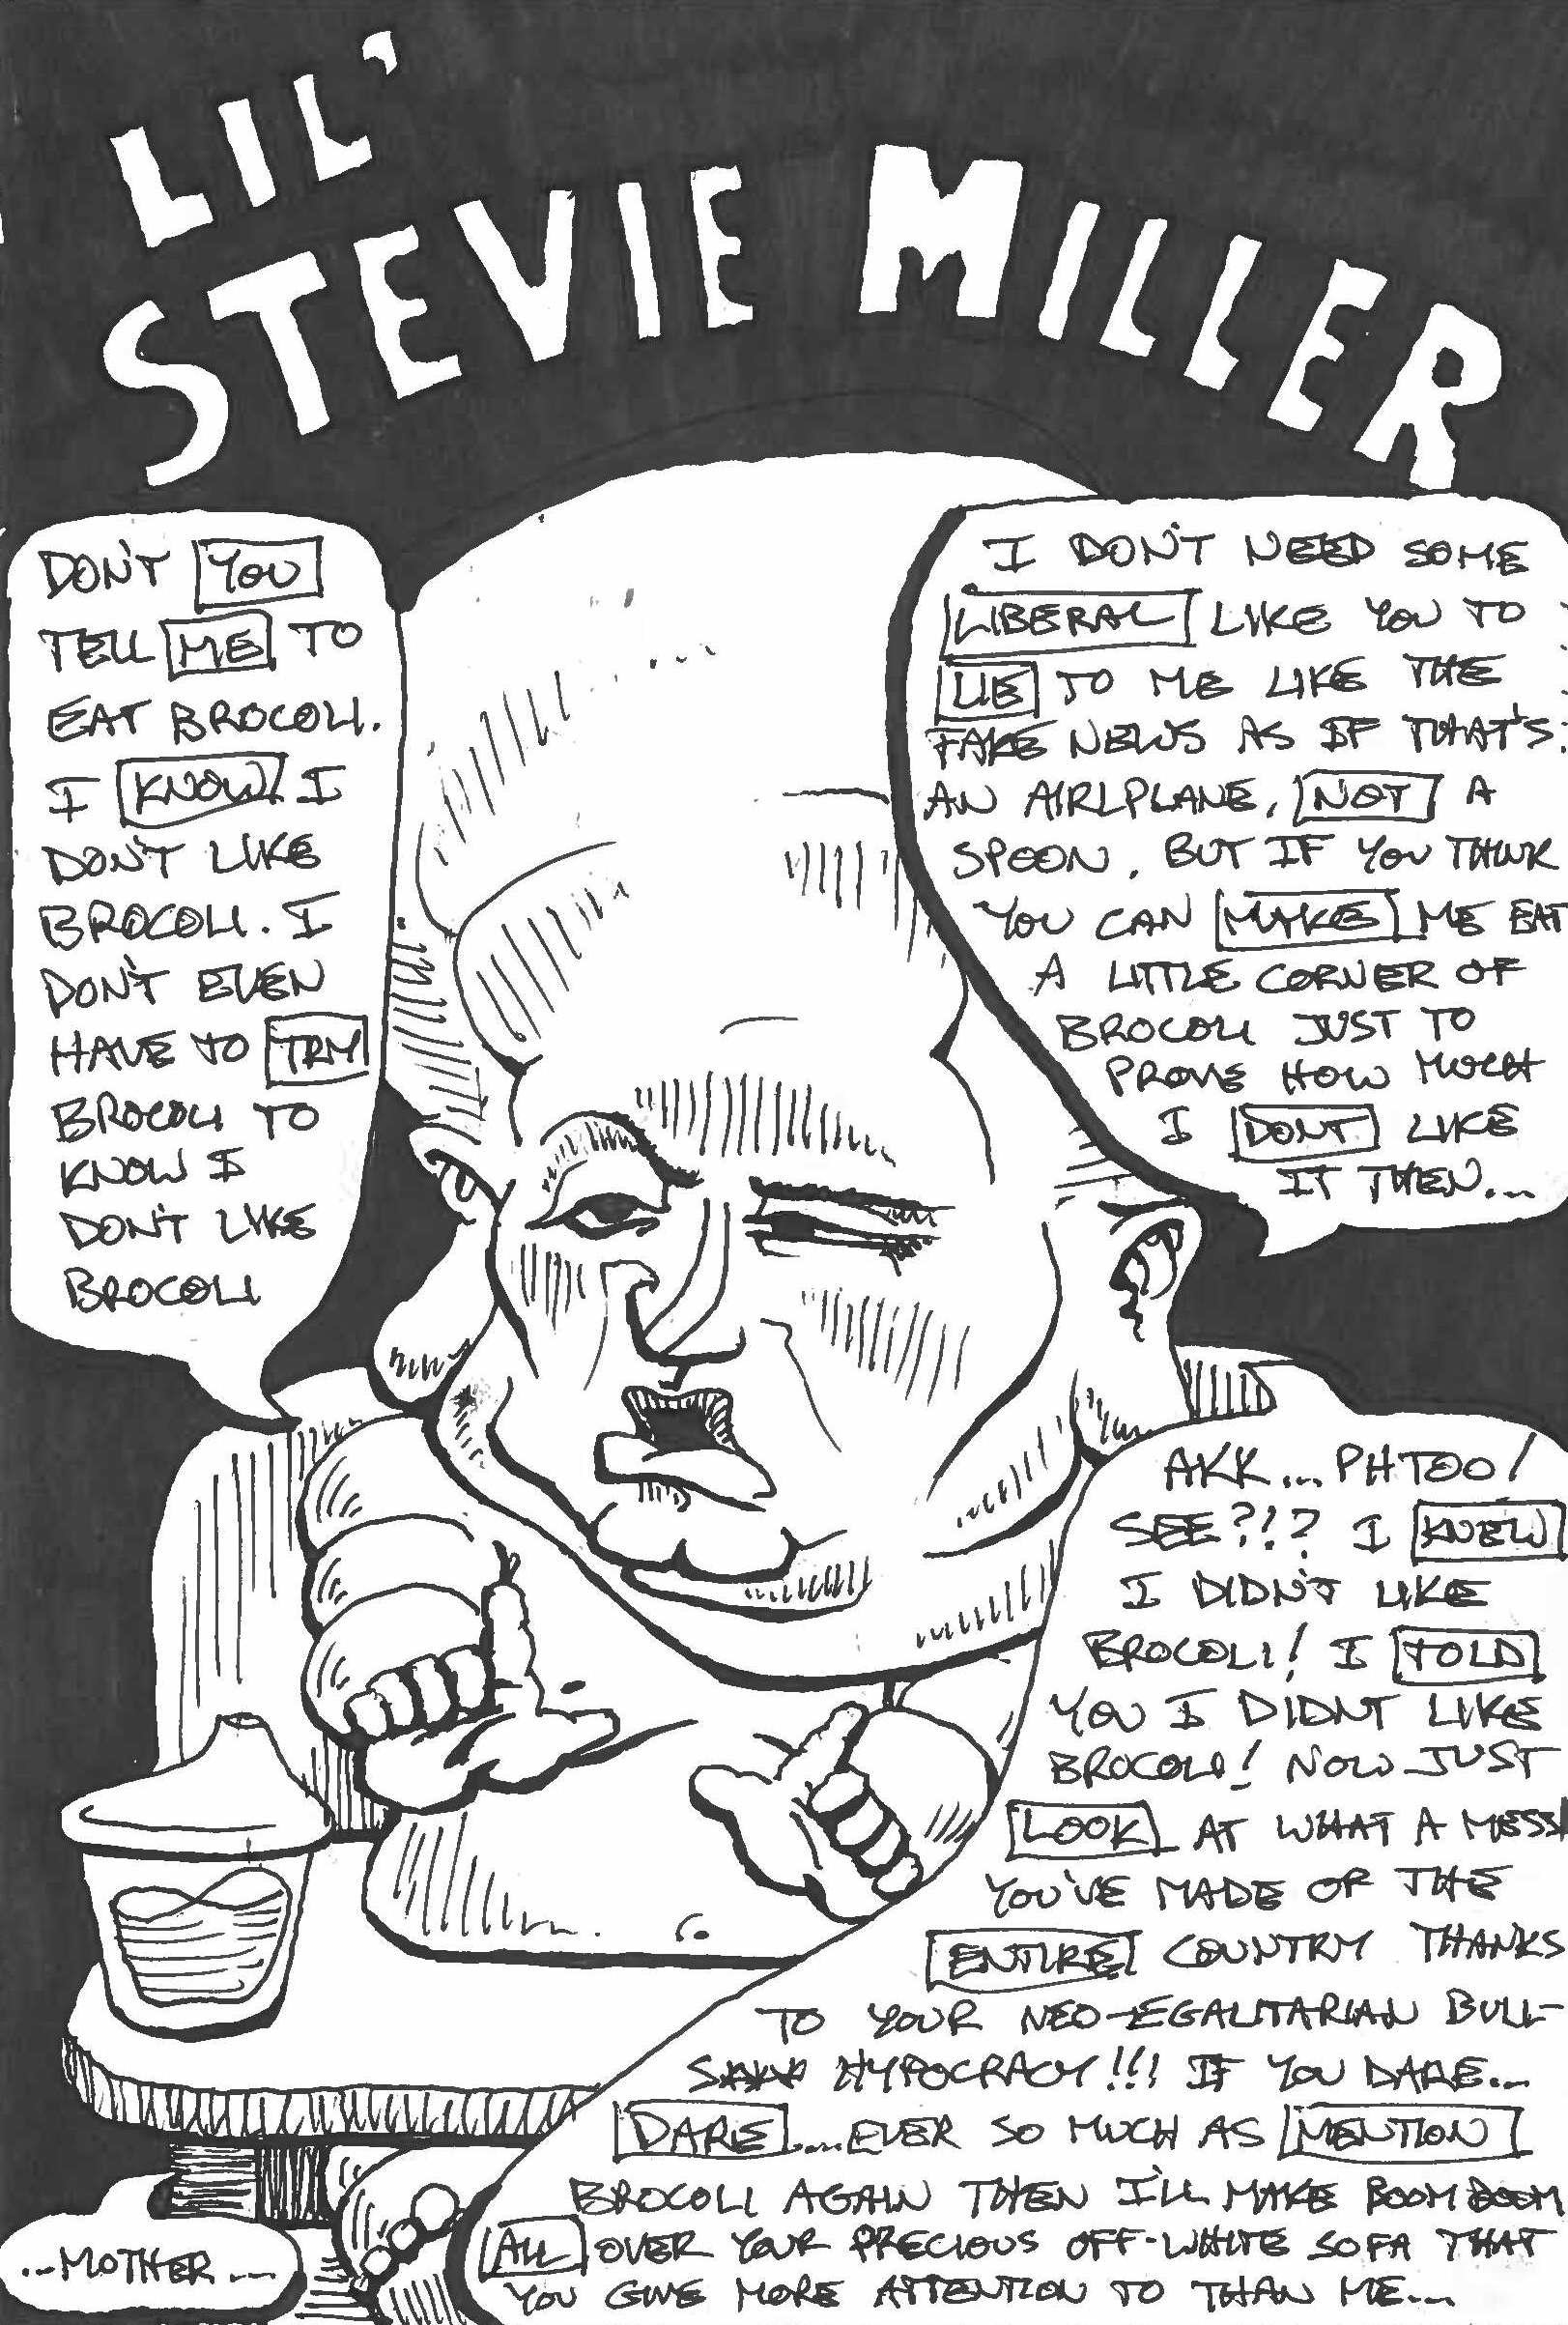 LIL'
STEVIE MILLER
DON'T YOU
TELL ME TO
EAT BROCOLI.
I KNOW I
DON'T LIKE
BROCOLI. I
DON'T EVEN
HAVE TO TRY
BROCOLI TO
KNOW I
DON'T LIKE
BROCOLI
I DON'T NEED SOME
LIBERAL LIKE YOU TO
LIE TO ME LIKE THE
FAKE NEWS AS IF THAT'S
AN AIRLPLANE, NOT A
SPOON. BUT IF YOU THINK
YOU CAN MAKE ME EAT
A LITTLE CORNER OF
BROCOLI JUST TO
PROVE HOW MUCH
I DON'T LIKE
IT THEN...
AKK... PHTOO!
SEE?!? I KNEW
I DIDN'T LIKE
BROCOLI! I TOLD
YOU I DIDNT LIKE
BROCOLI! NOW JUST
LOOK AT WHAT A MESS
YOU'VE MADE OF THE
ENTIRE COUNTRY THANKS
TO YOUR NEO-EGALITARIAN BULL-
HYPOCRACY!!! IF YOU DARE...
DARE....EVER SO MUCH AS MENTION
BROCOLI AGAIN THEN I'LL MAKE BOOM BOOM
ALL OVER YOUR PRECIOUS OFF-WHITE SOFA THAT
YOU GIVE MORE ATTENTION TO THAN ME...
...MOTHER...